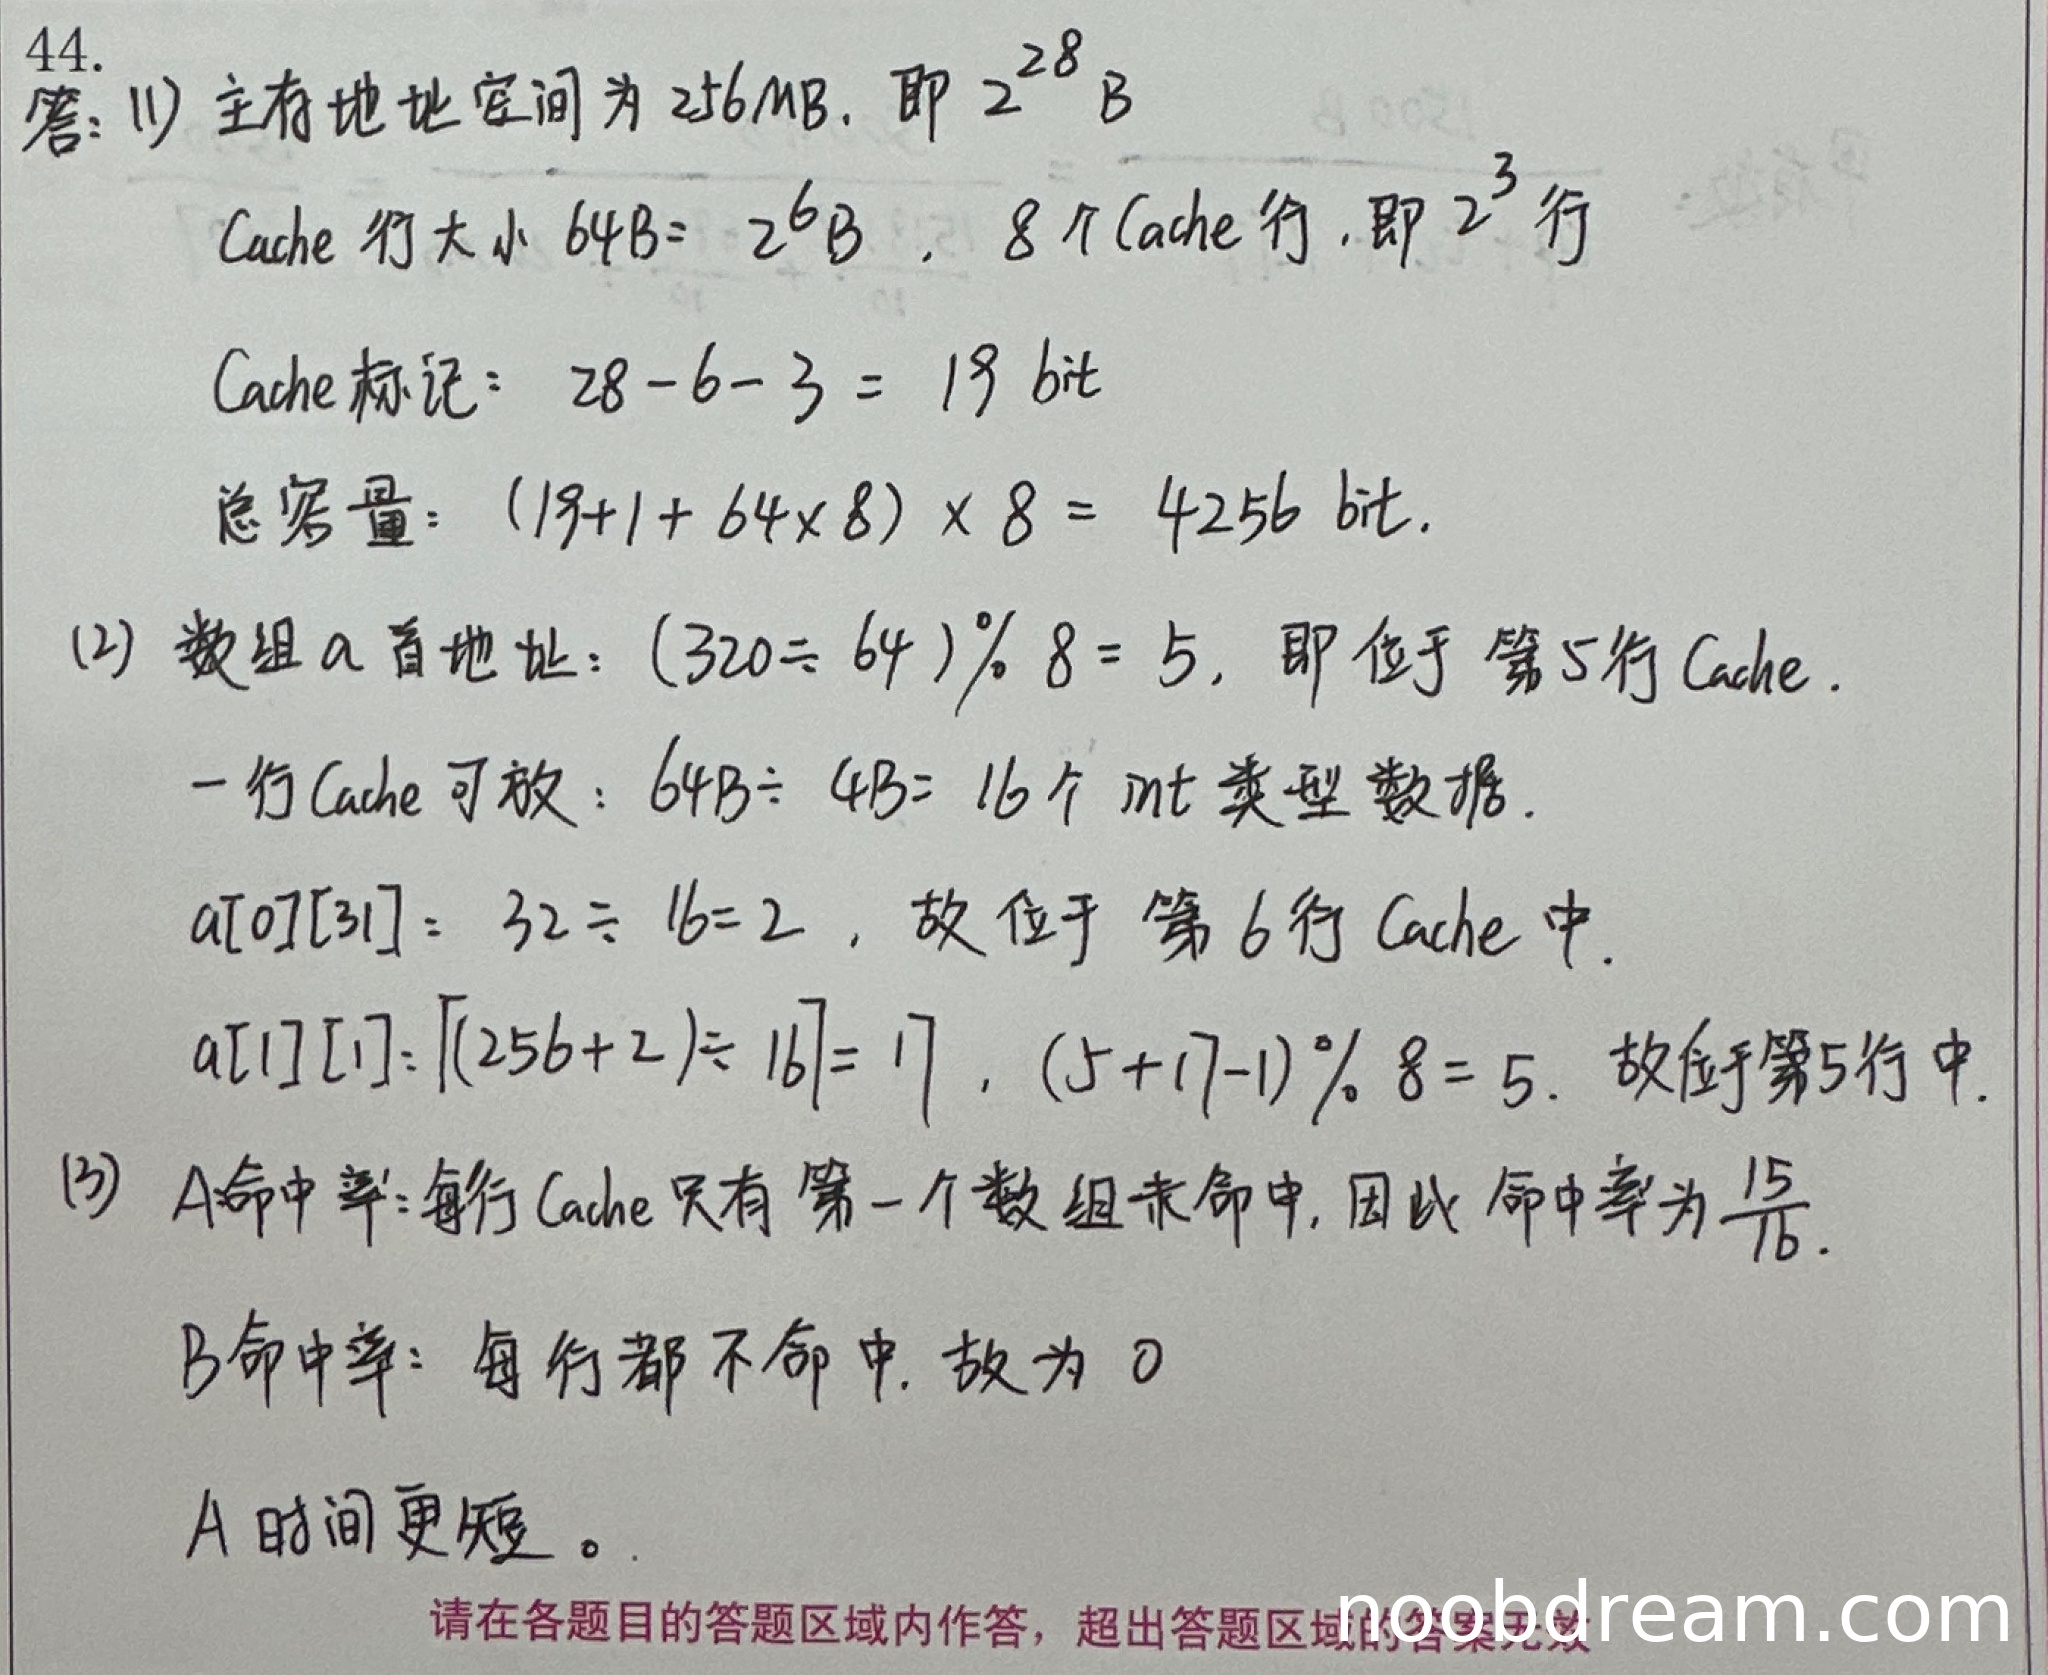 44.
答: (1) 主存地址空间为 256MB. 即 2^28 B
Cache 行大小 64B= 2^6B , 8个Cache行,即 2^3 行
Cache标记: 28-6-3 = 19 bit
总容量: (19+1+64×8) × 8 = 4256 bit.
(2) 数组a首地址: (320÷64)% 8 = 5, 即位于第5行Cache.
一行Cache可放: 64B÷ 4B= 16个 int 类型数据.
a[0][31]: 32÷ 16=2 , 故位于第6行Cache中.
a[1][1]:⌈(256+2)÷ 16⌉= 17 , (5+17-1)% 8 = 5. 故位于第5行中.
(3) A命中率:每行Cache只有第一个数组未命中,因此命中率为15/16.
B命中率: 每行都不命中. 故为 0
A 时间更短。
请在各题目的答题区域内作答，超出答题区域的答案无效
noobdream.com